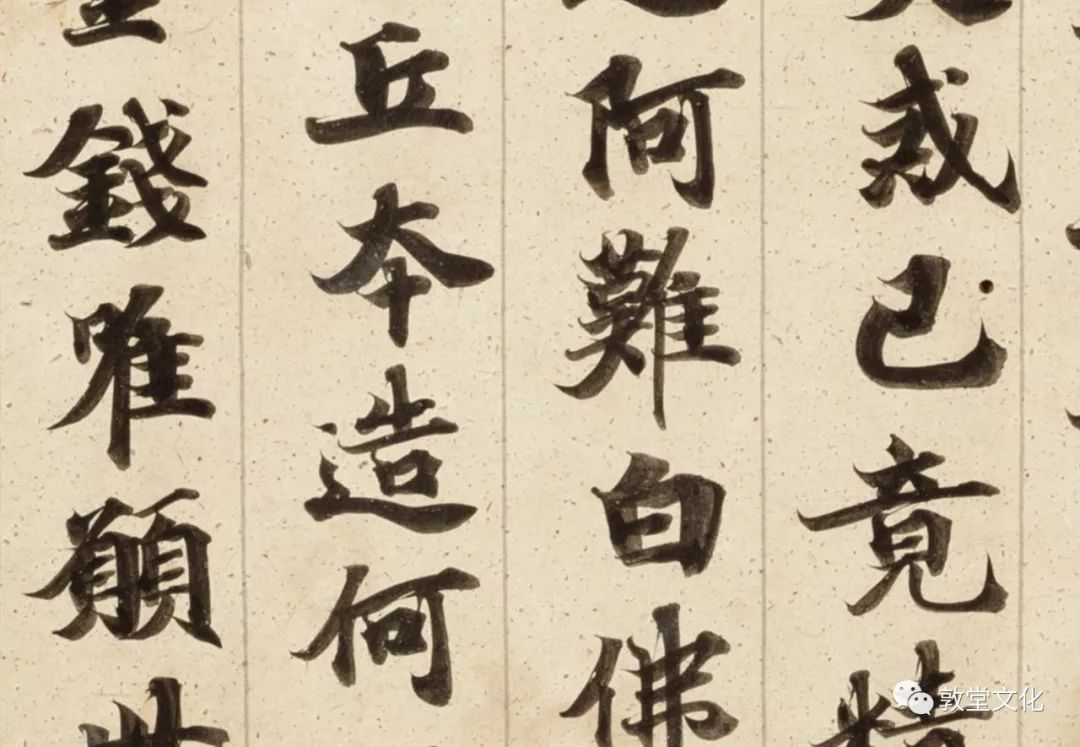 戒已竟精
阿難白佛
丘本造何
錢唯願世
敦堂文化